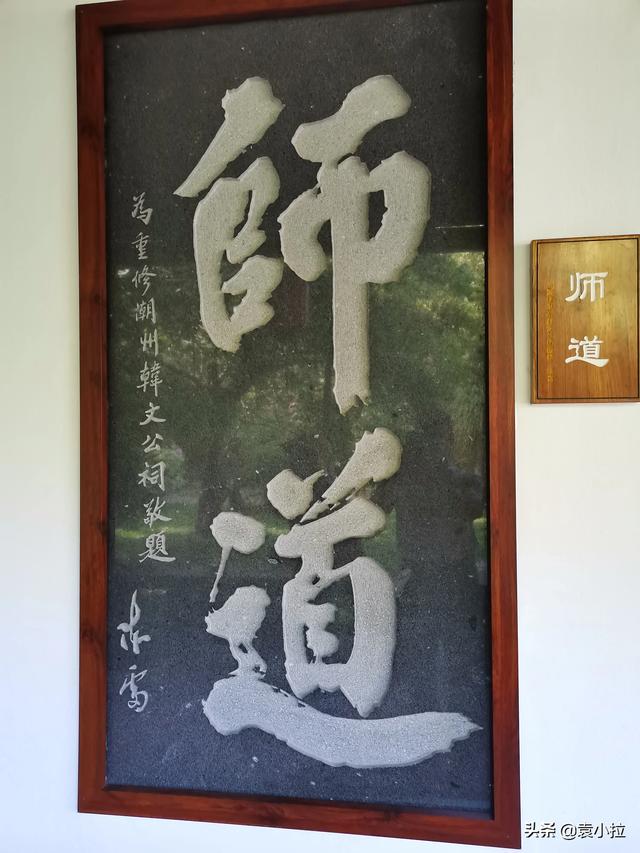 師道
為重修潮州韓文公祠敬題
师道
头条 @袁小拉